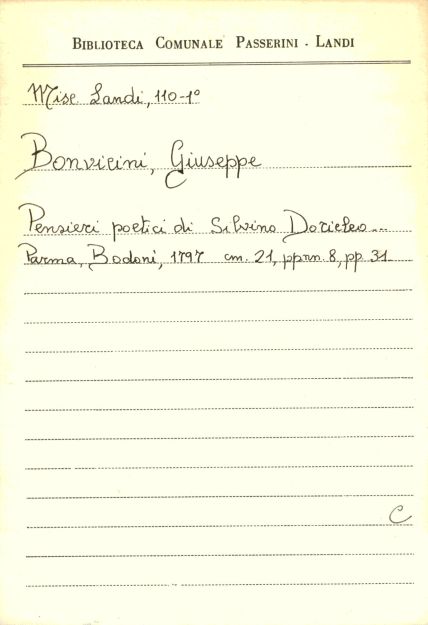 BIBLIOTECA COMUNALE PASSERINI - LANDI
Misc Landi, 110-1°
Bonvicini, Giuseppe
Pensieri poetici di Silvino Doricleo...
Parma, Bodoni, 1797 cm. 21, pp.nn. 8, pp. 31
C